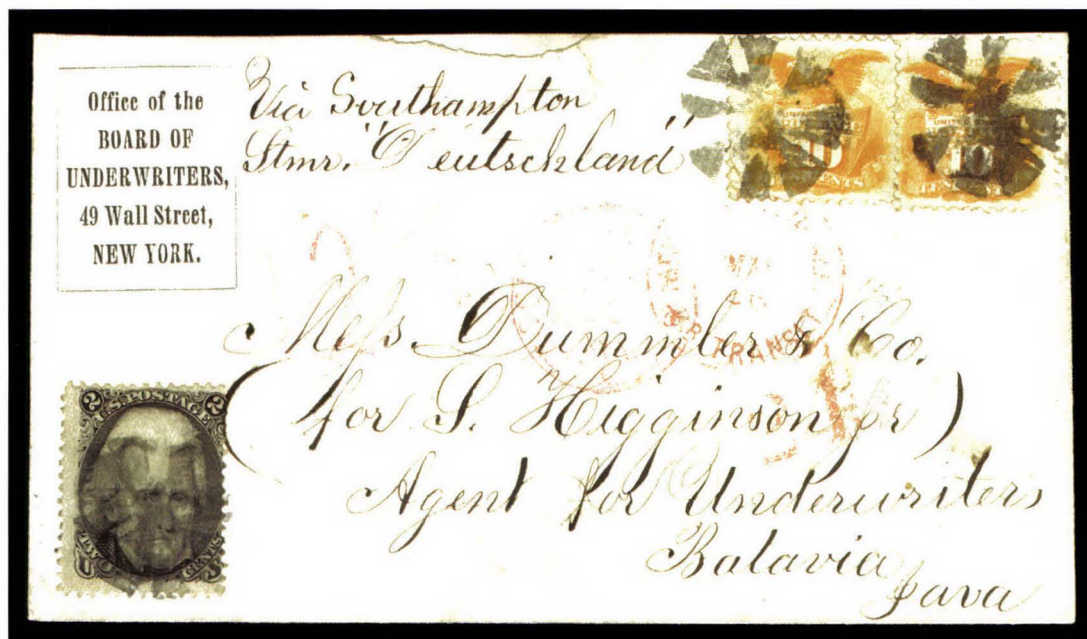 Office of the
BOARD OF
UNDERWRITERS,
49 Wall Street,
NEW YORK.
Via Southampton
Stmr. "Deutschland"
10
CENTS
10
TRANSIT
Mess. Dummler & Co.
(for S. Higginson Jr)
Agent for Underwriters
Batavia
Java
2 U.S. POSTAGE 2
TWO CENTS